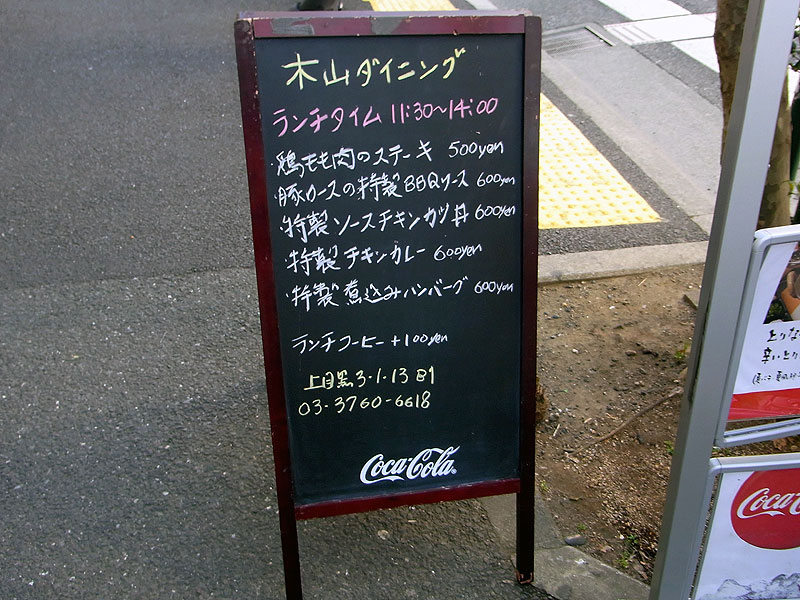 木山ダイニング
ランチタイム 11:30〜14:00
・鶏もも肉のステーキ 500yen
・豚ロースの特製BBQソース 600yen
・特製ソースチキンカツ丼 600yen
・特製チキンカレー 600yen
・特製煮込みハンバーグ 600yen
ランチコーヒー +100yen
上目黒3-1-13 B1
03-3760-6618
Coca-Cola
上りな
辛い上り
Coca-C